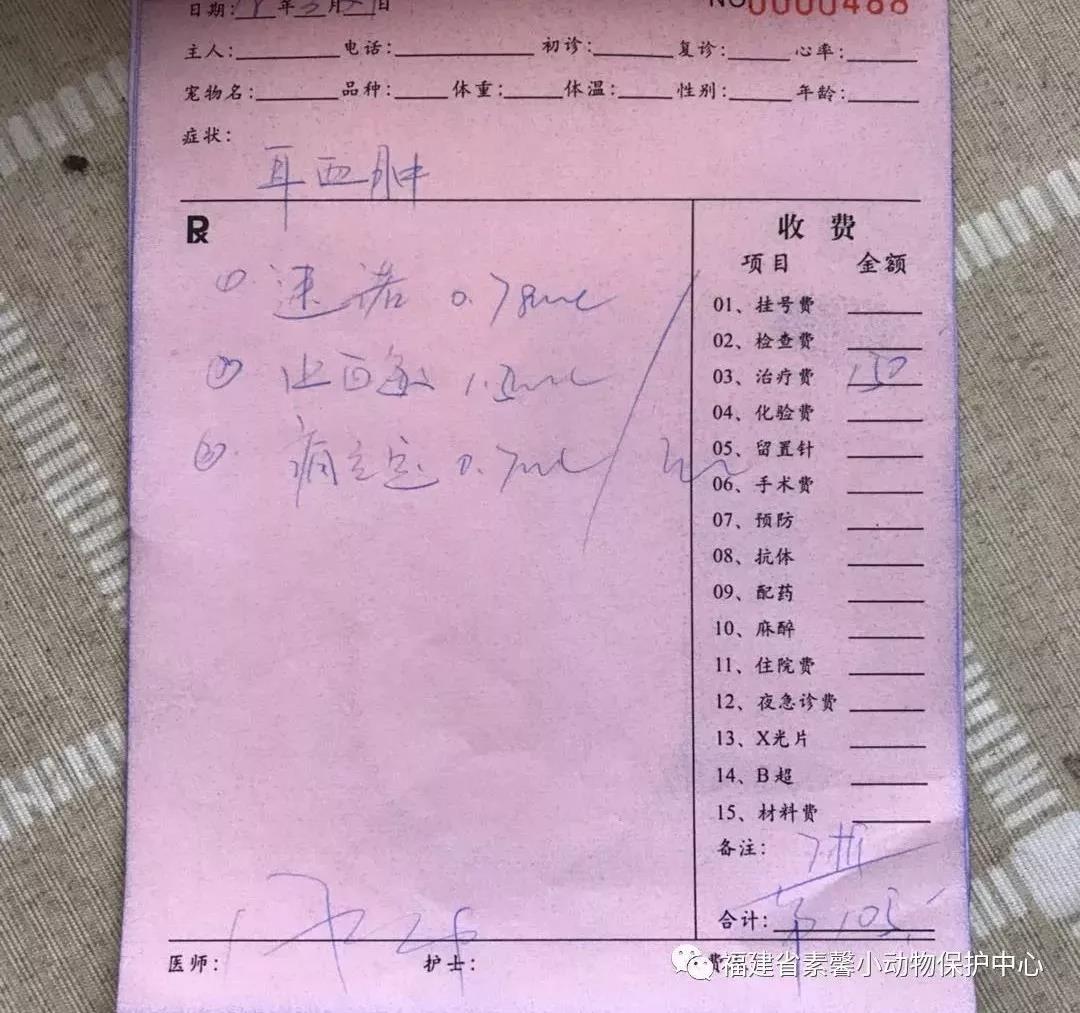 日期: 18年3月21日 NO 0000488
主人: 电话: 初诊: 复诊: 心率:
宠物名: 品种: 体重: 体温: 性别: 年龄:
症状:
耳血肿
Rx
① 速诺 0.78ml
② 止血敏 1.5ml
③ 痛立定 0.7ml
收费
项目 金额
01、挂号费
02、检查费
03、治疗费 150
04、化验费
05、留置针
06、手术费
07、预防
08、抗体
09、配药
10、麻醉
11、住院费
12、夜急诊费
13、X光片
14、B超
15、材料费
备注: 7折
合计: 105
医师: 护士:
福建省素馨小动物保护中心